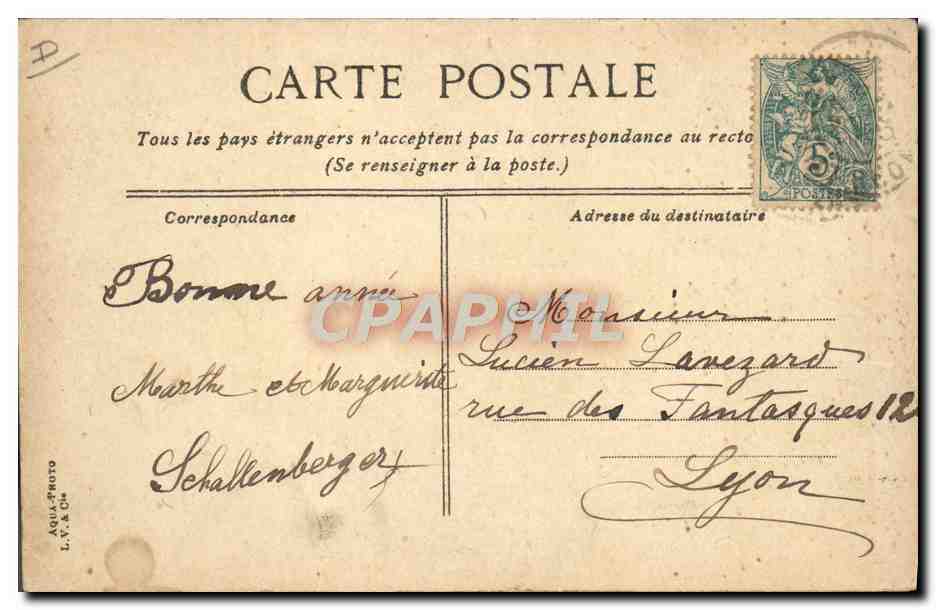 D
CARTE POSTALE
Tous les pays étrangers n'acceptent pas la correspondance au recto
(Se renseigner à la poste.)
Correspondance
Adresse du destinataire
5c
POSTES
Bonne année
Marthe et Marguerite
Schallenberger
Monsieur
Lucien Lavezard
rue des Fantasques 12
Lyon
CPAPHIL
AQUA-PHOTO
L. V. & Cie